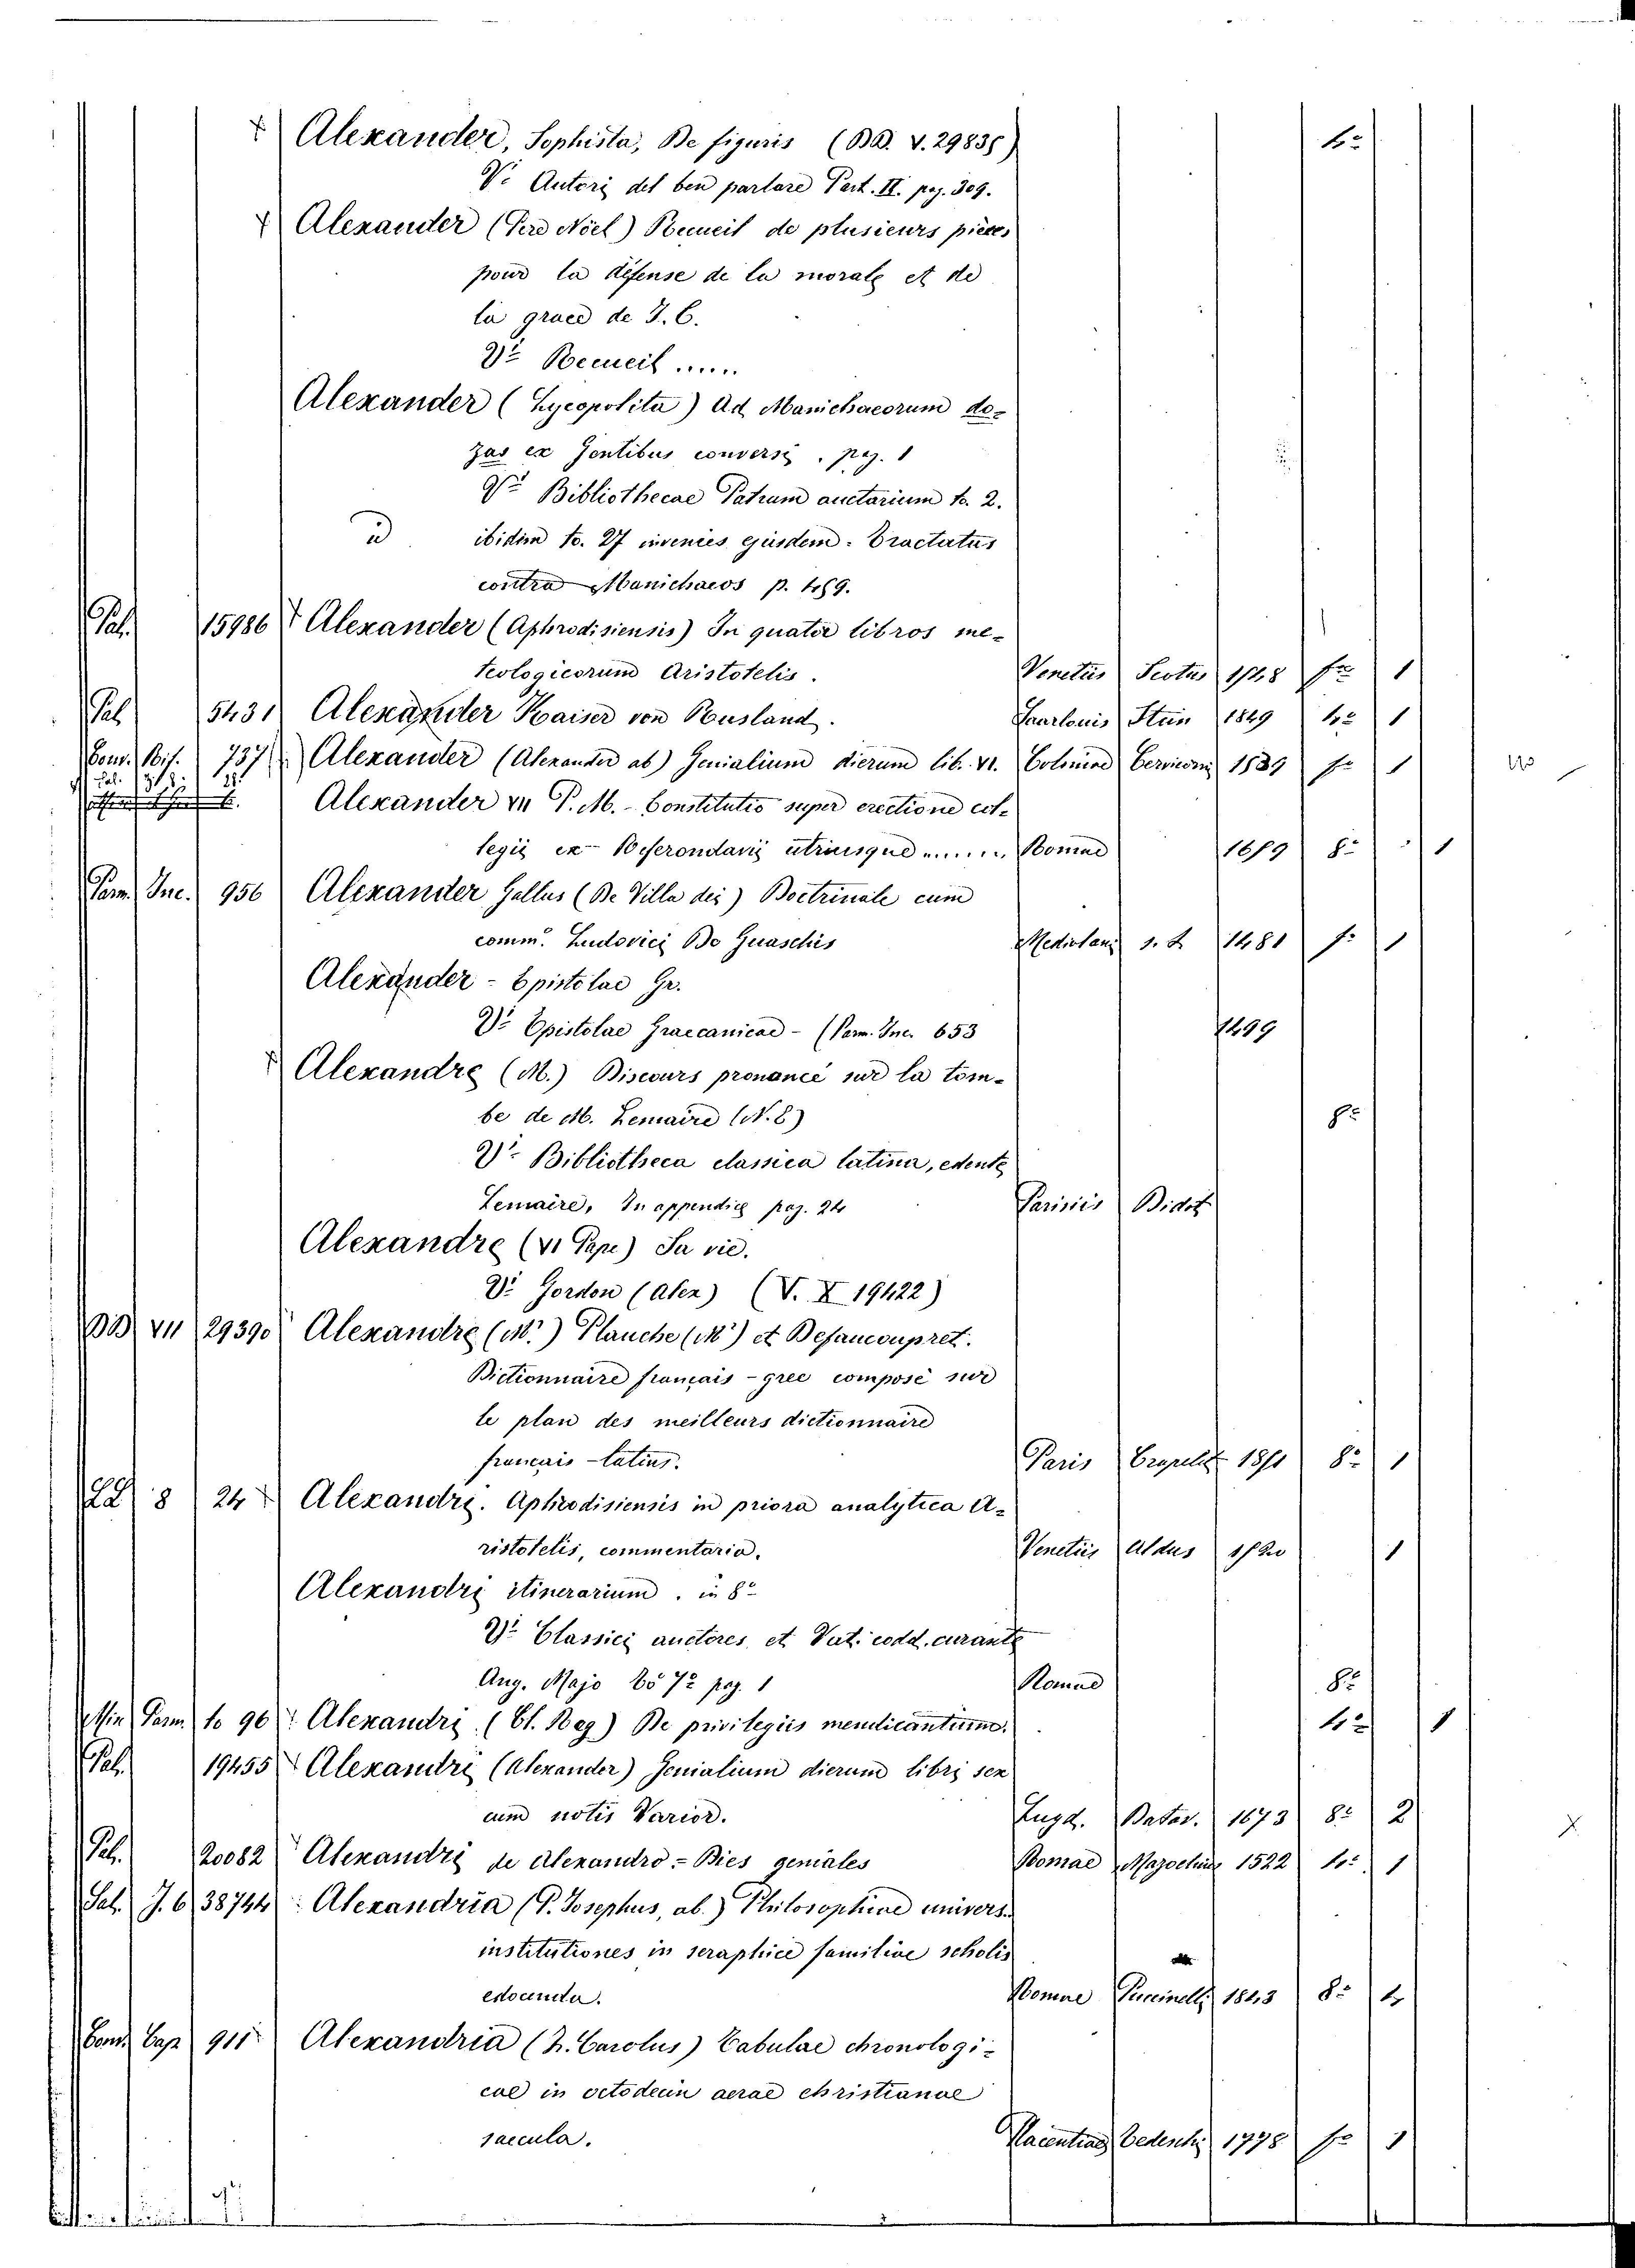 Alexander, Sophista, De figuris (BB. V. 29835) 4º
Vº Autori del ben parlare Part. II. pag. 309.
Alexander (Pere Nöel) Recueil de plusieurs pièces
pour la défense de la morale et de
la grace de J. C.
Vº Recueil ......
Alexander (Lycopolita) Ad Manichaeorum do-
gas ex Gentibus conversi. pag. 1
Vº Bibliothecae Patrum auctarium to. 2.
id ibidem to. 27 invenies ejusdem. Tractatus
contra Manichaeos p. 469.
Pal. 15986 Alexander (Aphrodisiensis) In quator libros me-
teologicorum Aristotelis. Venetiis Scotus 1548 fº 1
Pal. 5431 Alexander Kaiser von Rusland. Saarlouis Stein 1849 4º 1
Conv. Bif. 737 Alexander (Alexander ab) Genialium dierum lib. VI. Coloniae Cervicorni 1539 fº 1
Alexander VII P. M. - Constitutio super erectione col-
legii ex- Referondarii utriusque ...... Romae 1659 8º 1
Parm. Inc. 956 Alexander Gallus (De Villa dei) Doctrinale cum
comm. Ludovici De Guaschis Mediolani s. t. 1481 fº 1
Alexander - Epistolae Gr.
Vº Epistolae Graecanicae - (Parm. Inc. 653 1499
Alexandre (M.) Discours prononcé sur la tom-
be de M. Lemaire (N. E) 8º
Vº Bibliotheca classica latina, edente
Lemaire, In appendice pag. 24 Parisiis Didot
Alexandre (VI Pape) Sa vie.
Vº Gordon (Alex) (V. X 19422)
BB VII 29390 Alexandre (Mr.) Planche (Mr) et Defauconpret.
Dictionnaire français - grec composé sur
le plan des meilleurs dictionnaire
français - latins. Paris Crapelet 1851 8º 1
LL 8 24 Alexandri. Aphrodisiensis in priora analytica A-
ristotelis, commentaria. Venetiis Aldus 1520 1
Alexandri itinerarium. in 8º
Vº Classici auctores et Vat. codd. curante
Ang. Majo to 7º pag. 1 Romae 8º
Min Parm. to 96 Alexandri (Cl. Reg) De privilegiis mendicantium. 4º 1
Pal. 19455 Alexandri (Alexander) Genialium dierum libri sex
cum notis Varior. Lugd. Batav. 1673 8º 2
Pal. 20082 Alexandri de Alexandro. - Dies geniales Romae Mazochius 1522 4º 1
Sal. J. 6 38744 Alexandria (P. Josephus, ab.) Philosophiae univers.
institutiones in seraphice familiae scholis
edocenda. Romae Puccinelli 1843 8º 4
Cond. Cap 911 Alexandria (L. Carolus) Tabulae chronologi-
cae in octodecim aerae christianae
saecula. Placentiae Tedeschi 1778 fº 1